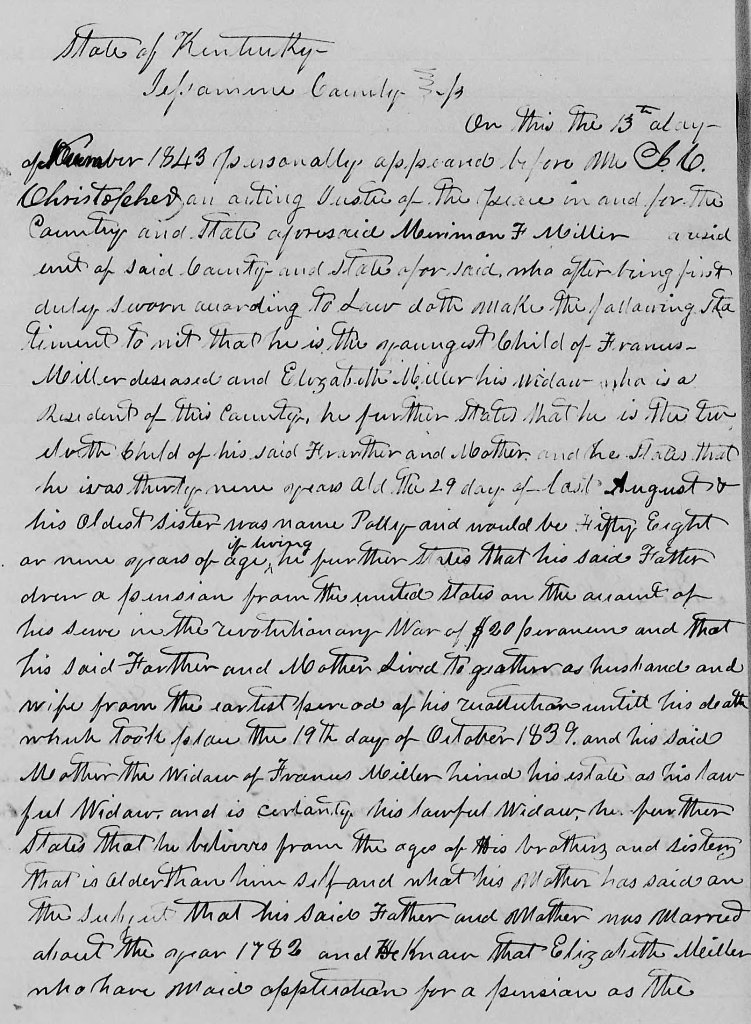 State of Kentucky
Jessamine County ss
On this the 13th day
of November 1843 personally appeared before me
Christopher, an acting Justice of the peace in and for the
County and State aforesaid Merriman F Miller a resid
ent of said County and State afor said, who after being first
duly sworn according to Law doth make the following sta
tement to wit that he is the youngest Child of Francis
Miller deseased and Elizabeth Miller his widaw who is a
Resident of this County, he further states that he is the twe
lvth Child of his said Frarther and Mother and he states that
he was thirty nine years old the 29 day of last August &
his oldest sister was name Polly and would be Fifty Eight
or nine years of age if living he further states that his said Father
drew a pension from the united states on the account of
his serve in the revolutionary War of $20 per annum and that
his said Farther and Mother Lived to geather as husband and
wife from the earlist period of his recollection untill his death
which took place the 19th day of October 1839. and his said
Mother the Widaw of Francis Miller hired his estate as his law
ful Widaw. and is certanly his lawful Widaw, he further
states that he belivers from the ages of His brothers and sisters
that is older than him self and what his Mother has said on
the subject that his said Father and Mother was Married
about the year 1782 and He Know that Elizabeth Meiller
who have maid application for a pension as the